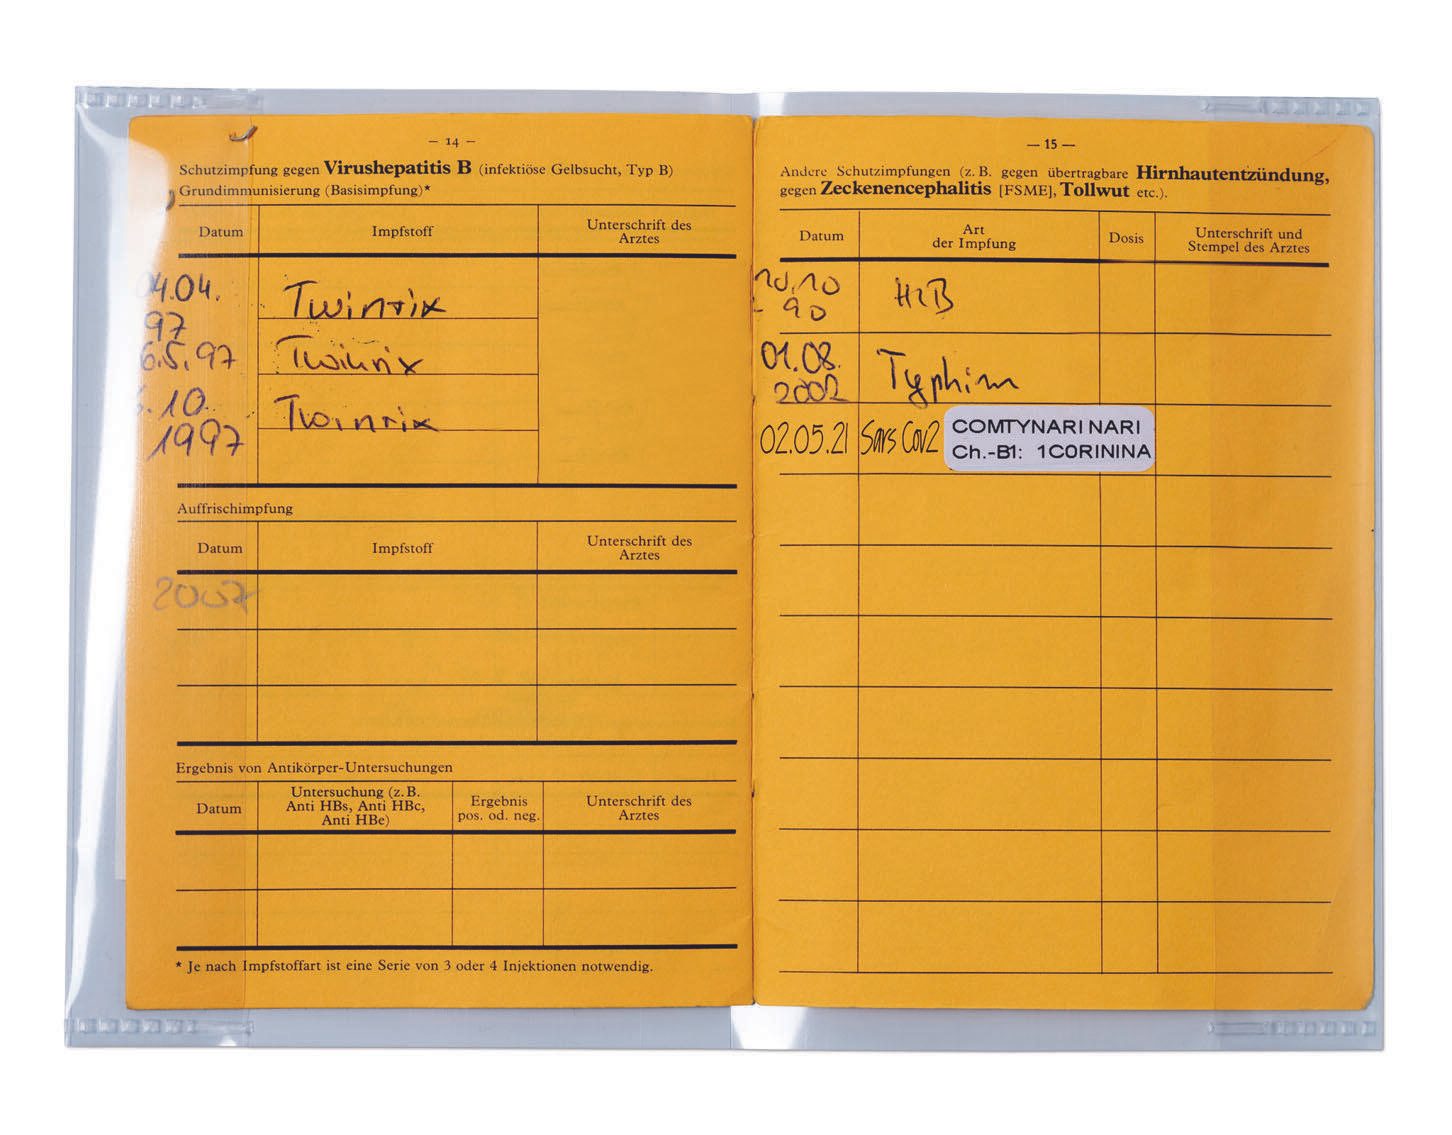 – 14 –
Schutzimpfung gegen Virushepatitis B (infektiöse Gelbsucht, Typ B)
Grundimmunisierung (Basisimpfung)*
Datum Impfstoff Unterschrift des Arztes
04.04. 97 Twinrix
6.5.97 Twinrix
.10. 1997 Twinrix
Auffrischimpfung
Datum Impfstoff Unterschrift des Arztes
2007
Ergebnis von Antikörper-Untersuchungen
Datum Untersuchung (z. B. Anti HBs, Anti HBc, Anti HBe) Ergebnis pos. od. neg. Unterschrift des Arztes
* Je nach Impfstoffart ist eine Serie von 3 oder 4 Injektionen notwendig.
– 15 –
Andere Schutzimpfungen (z. B. gegen übertragbare Hirnhautentzündung,
gegen Zeckenencephalitis [FSME], Tollwut etc.).
Datum Art der Impfung Dosis Unterschrift und Stempel des Arztes
10.10 - 90 HIB
01.08. 2002 Typhim
02.05.21 Sars Cov2 COMTYNARI NARI
Ch.-B1: 1C0RININA